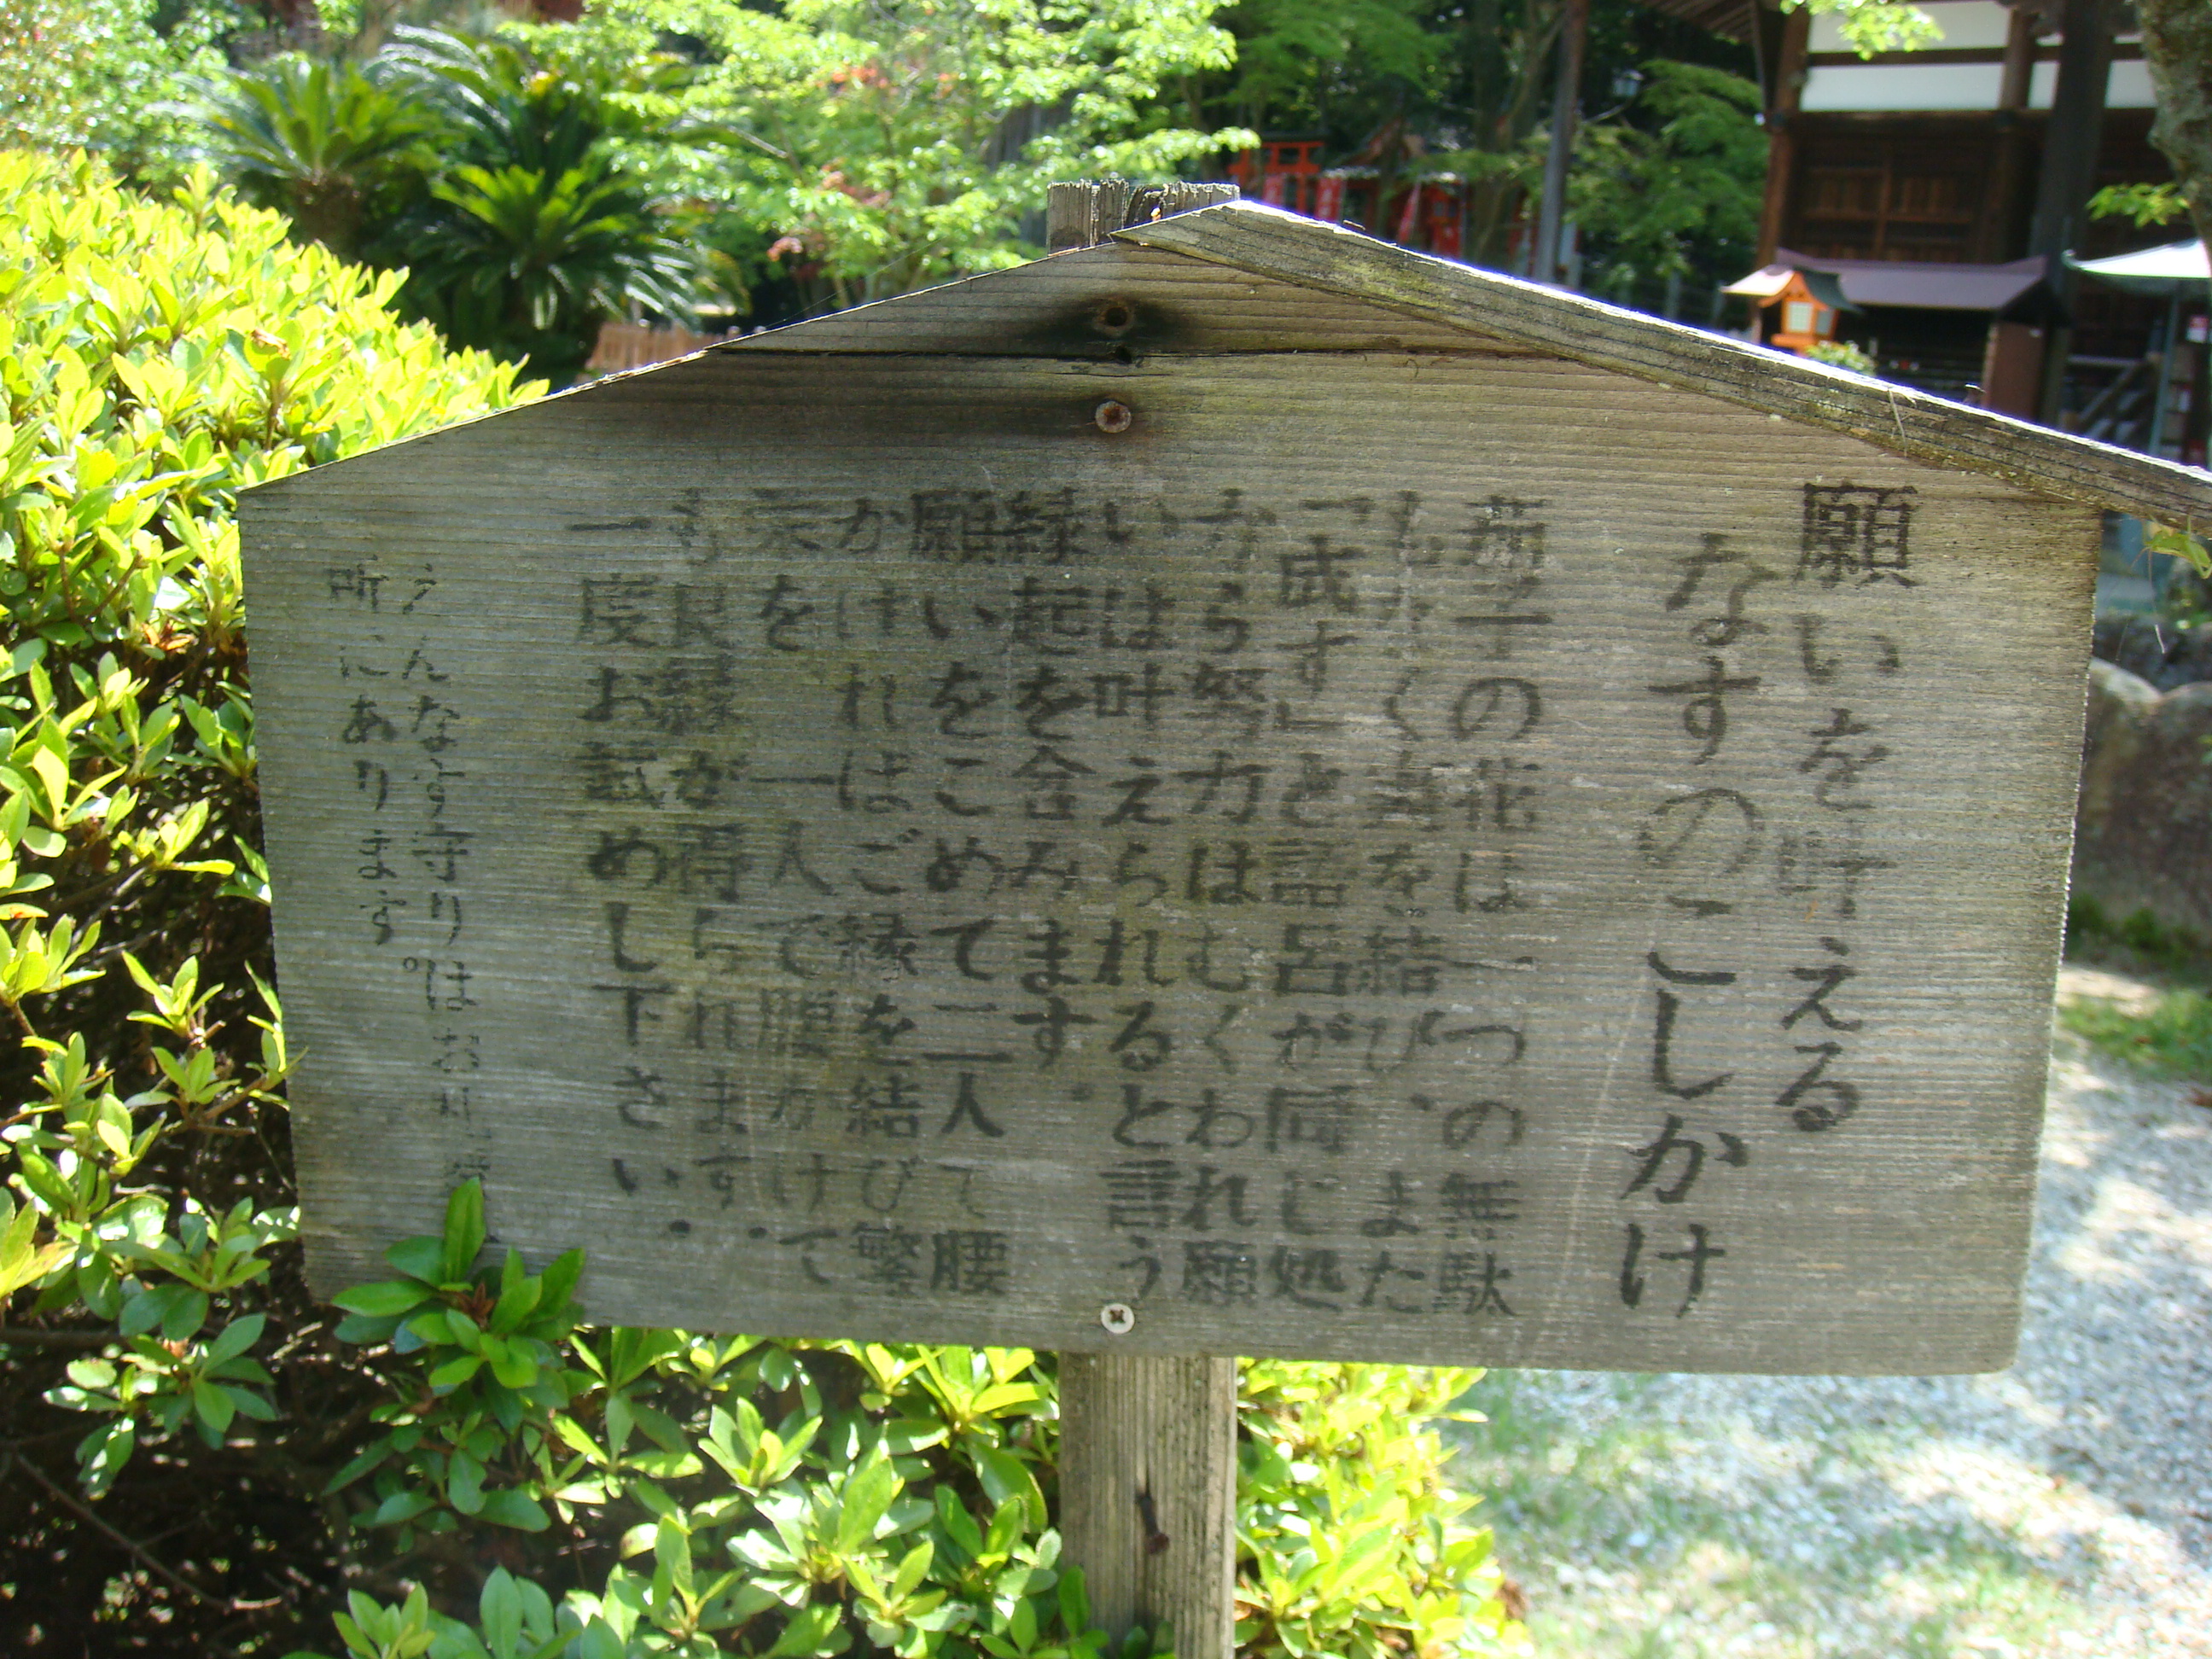 願いを叶える
なすのこしかけ
茄子の花は一つの無駄
もなく実を結び、また
「成す」と語呂が同じ処
から努力はむくわれ願
いは叶えられると言う
縁起を含みます.
願いをこめて二人で腰
かければご縁を結びて繁
栄を 一人で腰かけて
も良縁が得られます.
一度お試めし下さい.
えんなす守りはお札
所にあります。